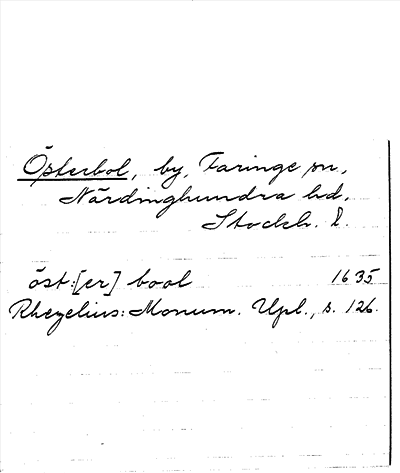 Österbol, by, Faringe sn,
Närdinghundra hd,
Stockh. l.
öst:[er] bool 1635
Rhezelius: Monum. Upl., s. 126.